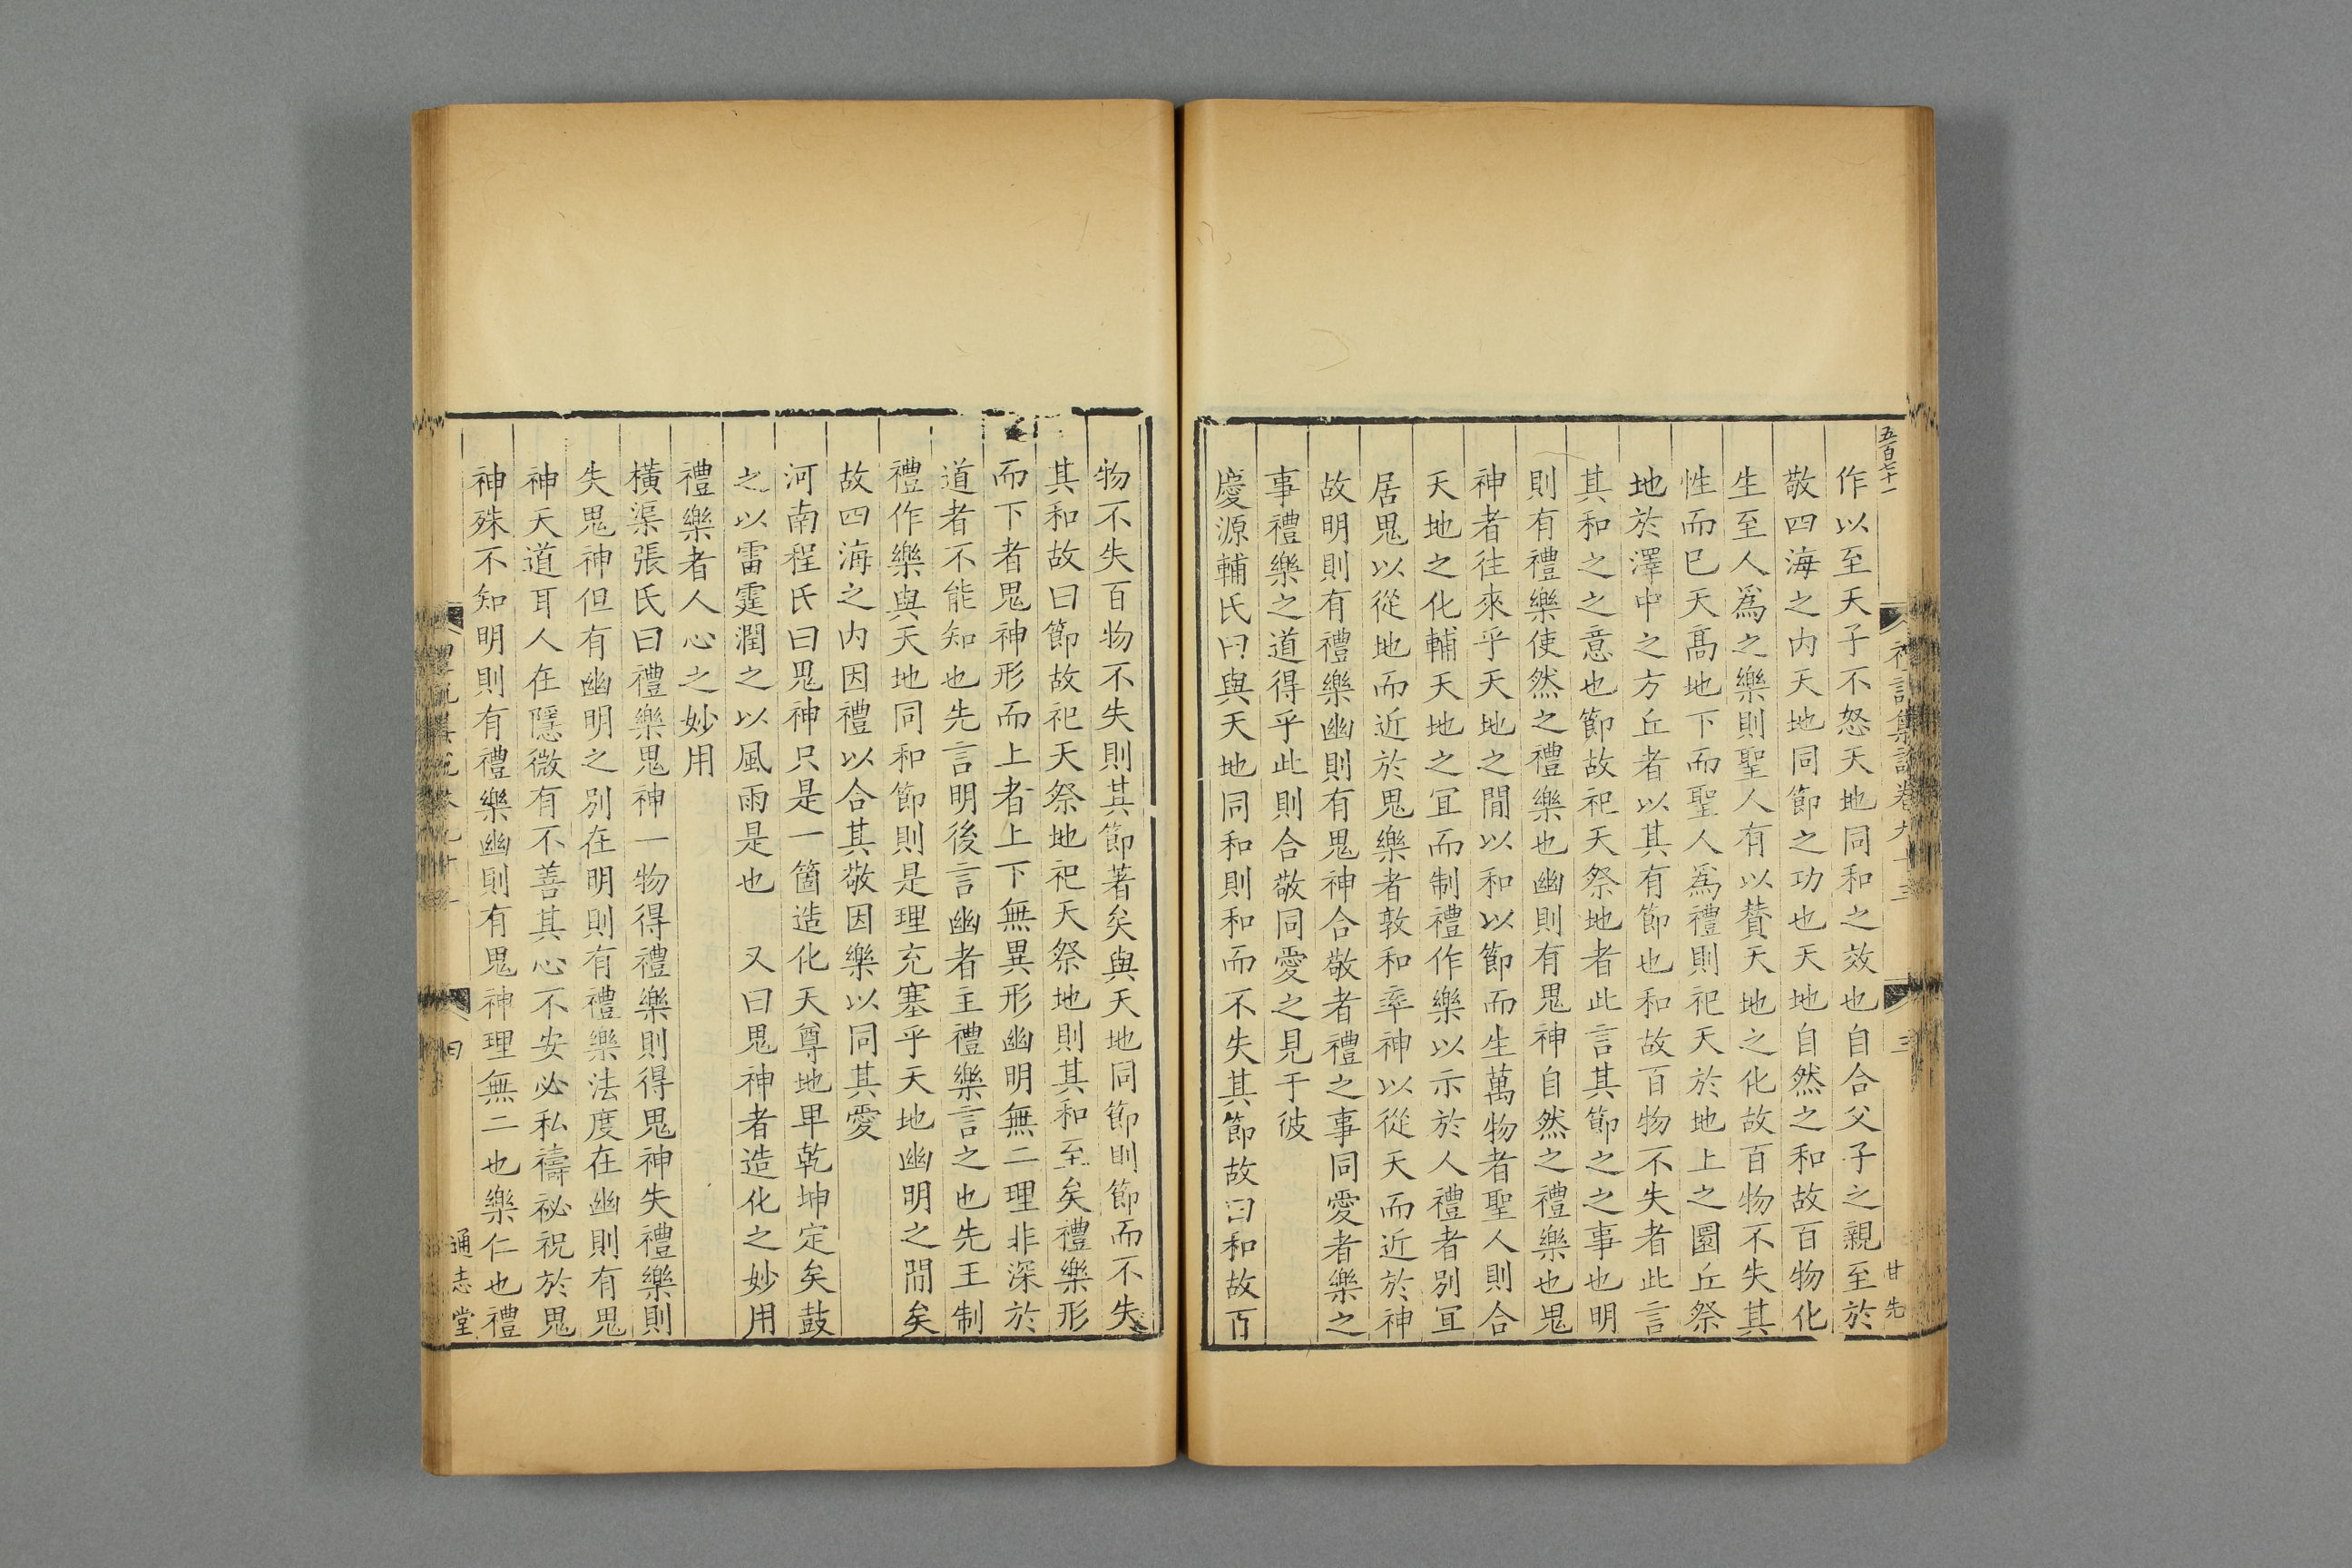 五百七十一
禮記集說卷九十三
三
甘先
作以至天子不怒天地同和之效也自合父子之親至於
敬四海之内天地同節之功也天地自然之和故百物化
生至人爲之樂則聖人有以賛天地之化故百物不失其
性而已天高地下而聖人爲禮則祀天於地上之圜丘祭
地於澤中之方丘者以其有節也和故百物不失者此言
其和之之意也節故祀天祭地者此言其節之之事也明
則有禮樂使然之禮樂也幽則有鬼神自然之禮樂也鬼
神者往來乎天地之閒以和以節而生萬物者聖人則合
天地之化輔天地之冝而制禮作樂以示於人禮者别冝
居鬼以從地而近於鬼樂者敦和率神以從天而近於神
故明則有禮樂幽則有鬼神合敬者禮之事同愛者樂之
事禮樂之道得乎此則合敬同愛之見于彼
慶源輔氏曰與天地同和則和而不失其節故曰和故百
物不失百物不失則其節著矣與天地同節則節而不失
其和故曰節故祀天祭地祀天祭地則其和至矣禮樂形
而下者鬼神形而上者上下無異形幽明無二理非深於
道者不能知也先言明後言幽者主禮樂言之也先王制
禮作樂與天地同和節則是理充塞乎天地幽明之閒矣
故四海之内因禮以合其敬因樂以同其愛
河南程氏曰鬼神只是一箇造化天尊地卑乾坤定矣鼓
之以雷霆潤之以風雨是也　又曰鬼神者造化之妙用
禮樂者人心之妙用
横渠張氏曰禮樂鬼神一物得禮樂則得鬼神失禮樂則
失鬼神但有幽明之别在明則有禮樂法度在幽則有鬼
神天道耳人在隱微有不善其心不安必私禱祕祝於鬼
神殊不知明則有禮樂幽則有鬼神理無二也樂仁也禮
通志堂